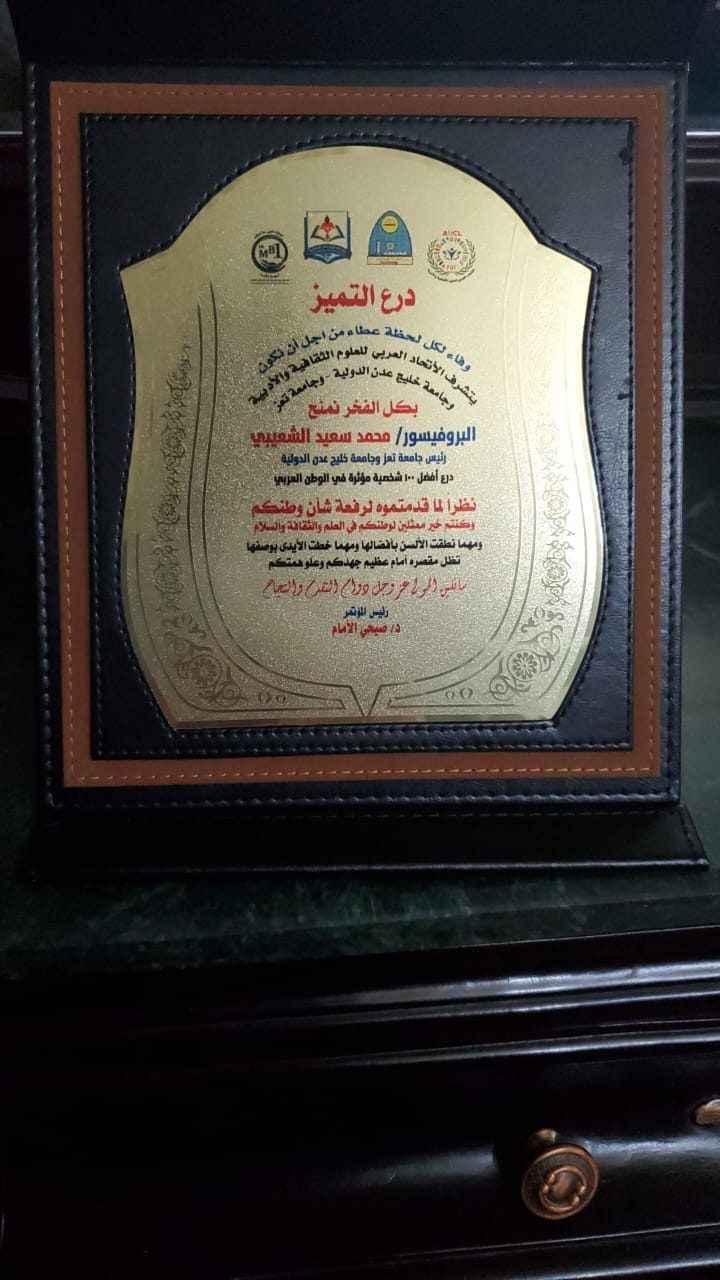 MB1
AUCL
درع التميز
وفاء لكل لحظة عطاء من اجل أن نكون
يتشرف الأتحاد العربي للعلوم الثقافية والأدبية
وجامعة خليج عدن الدولية - وجامعة تعز
بكل الفخر نمنح
البروفيسور/ محمد سعيد الشعيبي
رئيس جامعة تعز وجامعة خليج عدن الدولية
درع أفضل ١٠٠ شخصية مؤثرة في الوطن العربي
نظرا لما قدمتموه لرفعة شأن وطنكم
وكنتم خير ممثلين لوطنكم في العلم والثقافة والسلام
ومهما نطقت الألسن بأفضالها ومهما خطت الأيدى بوصفها
تظل مقصره أمام عظيم جهدكم وعلو همتكم
سائلين المولى عز وجل دوام التقدم والنجاح
رئيس المؤتمر
د/ صبحي الأمام